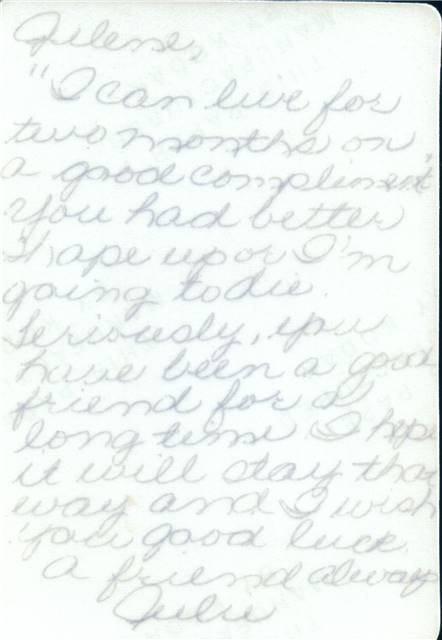 Jilene,
"I can live for
two months on
a good compliment"
You had better
shape up or I'm
going to die.
Seriously, you
have been a good
friend for a
long time I hope
it will stay that
way and I wish
you good luck.
A friend always
Julie